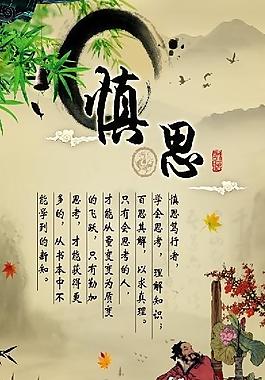 慎思
慎思笃行者，
学会思考，理解知识；
百思其解，以求真理。
只有会思考的人，
才能从量变变为质变
的飞跃，只有勤加
思考，才能获得更
多的，从书本中不
能学到的新知。